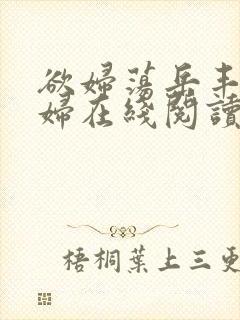 欲婦蕩岳丰
婦在綫閱讀
梧桐葉上三更